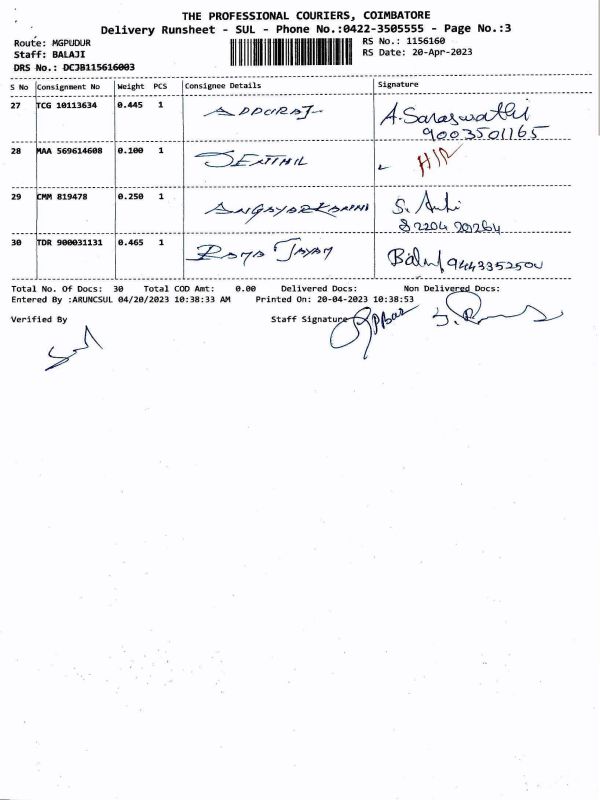 THE PROFESSIONAL COURIERS, COIMBATORE
Delivery Runsheet - SUL - Phone No.:0422-3505555 - Page No.:3
Route: MGPUDUR RS No.: 1156160
Staff: BALAJI RS Date: 20-Apr-2023
DRS No.: DCJB115616003
S No Consignment No Weight PCS Consignee Details Signature
27 TCG 10113634 0.445 1 APPURAJ A. Saraswathi
9003501165
28 MAA 569614608 0.100 1 SENTHIL
29 CMM 819478 0.250 1 ANGAYARKANNI S.
82204 20264
30 TDR 900031131 0.465 1 RAMA JAYAM 9443352500
Total No. Of Docs: 30 Total COD Amt: 0.00 Delivered Docs: Non Delivered Docs:
Entered By :ARUNCSUL 04/20/2023 10:38:33 AM Printed On: 20-04-2023 10:38:53
Verified By Staff Signature